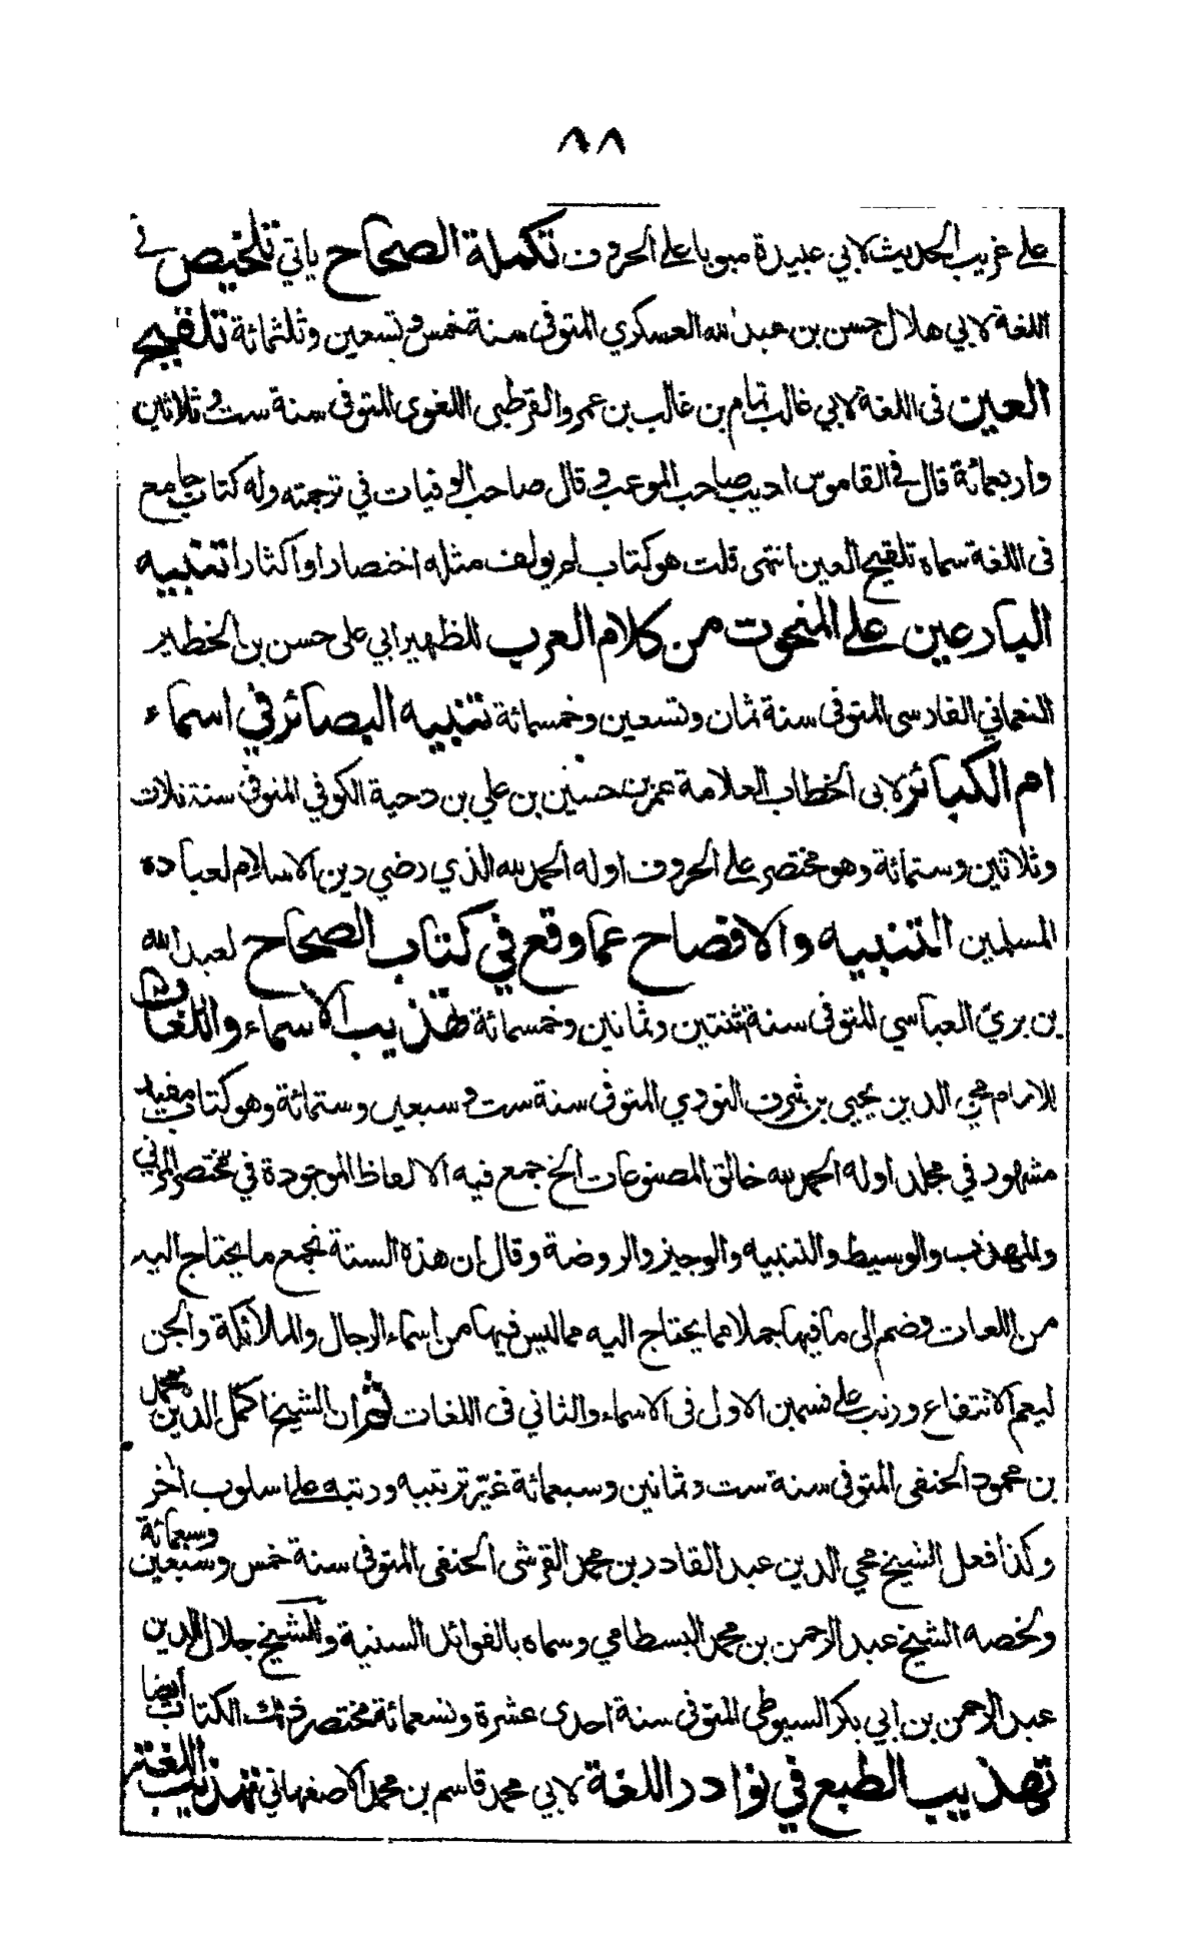 ٨٨
على غريب الحديث لابي عبيدة مبوبا على الحروف تكملة الصحاح ياتي تلخيص في
اللغة لابي هلال حسن بن عبد الله العسكري المتوفى سنة خمس وتسعين وثلثمائة تلقيح
العين فى اللغة لابي غالب تمام بن غالب بن عمرو القرطبى اللغوى المتوفى سنة ست وثلاثين
واربعمائة قال في القاموس اديب صاحب الموعب وقال صاحب الوفيات في ترجمته وله كتاب جامع
فى اللغة سماه تلقيح العين انتهى قلت هو كتاب لم يولف مثله اختصارا واكثارا تنبيه
البارعين على المنحوت من كلام العرب للظهير ابي على حسن بن الخطير
النعماني الفارسى المتوفى سنة ثمان وتسعين وخمسمائة تنبيه البصائر في اسماء
ام الكبائر لابى الخطاب العلامة عمر بن حسين بن علي بن دحية الكوفي المتوفى سنة ثلاث
وثلاثين وستمائة وهو مختصر على الحروف اوله الحمد لله الذي رضي دين الاسلام لعباده
المسلمين التنبيه والافصاح عما وقع في كتاب الصحاح لعبد الله
بن بري العباسي المتوفى سنة اثنتين وثمانين وخمسمائة تهذيب الاسماء واللغات
للامام محي الدين يحيى بن شرف النووي المتوفى سنة ست وسبعين وستمائة وهو كتاب مفيد
مشهور في مجلد اوله الحمد لله خالق المصنوعات الخ جمع فيه الالفاظ الموجودة في مختصر المزني
والمهذب والوسيط والتنبيه والوجيز والروضة وقال ان هذه الستة تجمع ما يحتاج اليه
من اللغات وضم الى ما فيها جملا مما يحتاج اليه مما ليس فيها من اسماء الرجال والملائكة والجن
ليعم الانتفاع ورتب على قسمين الاول فى الاسماء والثاني فى اللغات ثم ان الشيخ اكمل الدين محمد
بن محمود الحنفى المتوفى سنة ست وثمانين وسبعمائة غيّر ترتيبه ورتبه على اسلوب اخر
وكذا فعل الشيخ محي الدين عبد القادر بن محمد القرشى الحنفى المتوفى سنة خمس وسبعين وسبعمائة
ولخصه الشيخ عبد الرحمن بن محمد البسطامي وسماه بالفوائد السنية وللشيخ جلال الدين
عبد الرحمن بن ابي بكر السيوطى المتوفى سنة احدى عشرة وتسعمائة مختصر ذلك الكتاب ايضا
تهذيب الطبع في نوادر اللغة لابي محمد قاسم بن محمد الاصفهاني تهذيب اللغة